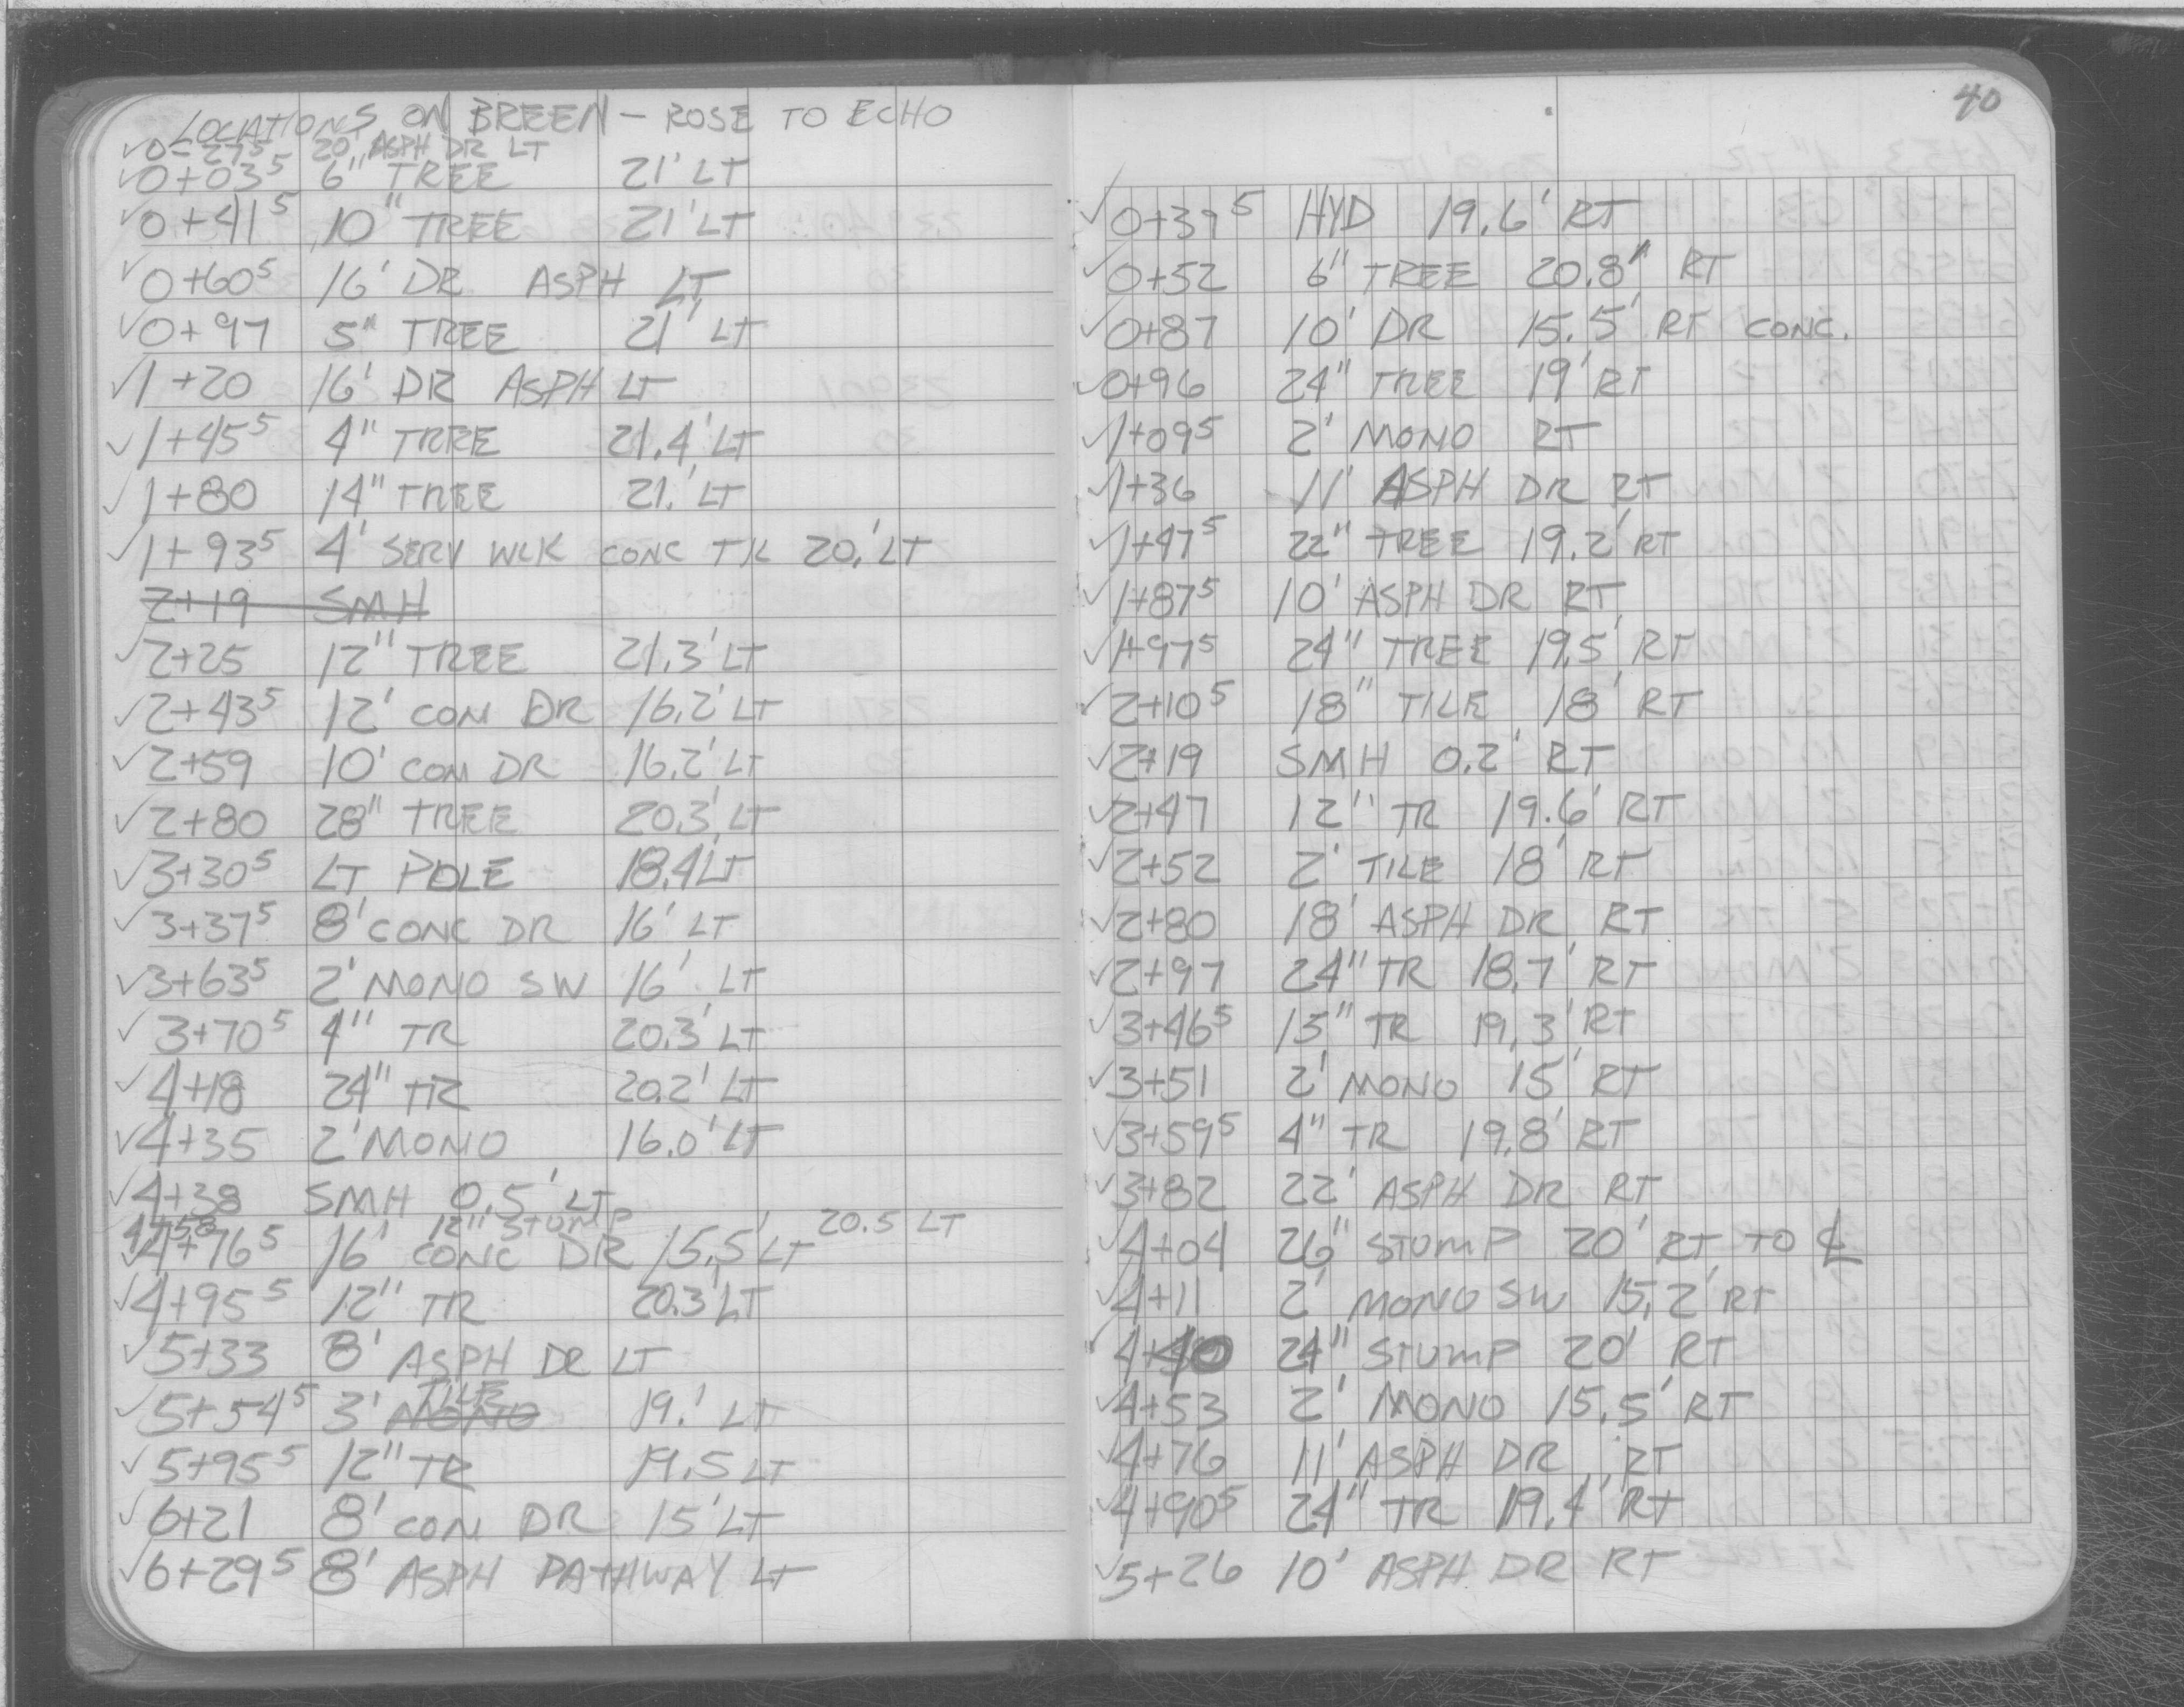 LOCATIONS ON BREEN - ROSE TO ECHO
0-27⁵ 20' ASPH DR LT
0+03⁵ 6" TREE 21' LT
0+41⁵ 10" TREE 21' LT
0+60⁵ 16' DR ASPH LT
0+97 5" TREE 21' LT
1+20 16' DR ASPH LT
1+45⁵ 4" TREE 21.4' LT
1+80 14" TREE 21.' LT
1+93⁵ 4' SERV WLK CONC TIL 20.' LT
2+19 SMH
2+25 12" TREE 21.3' LT
2+43⁵ 12' CON DR 16.2' LT
2+59 10' CON DR 16.2' LT
2+80 28" TREE 20.3' LT
3+30⁵ LT POLE 18.4' LT
3+37⁵ 8' CONC DR 16' LT
3+63⁵ 2' MONO SW 16' LT
3+70⁵ 4" TR 20.3' LT
4+18 24" TR 20.2' LT
4+35 2' MONO 16.0' LT
4+38 SMH 0.5' LT
4+58 12" STUMP 20.5 LT
4+76⁵ 16' CONC DR 15.5' LT
4+95⁵ 12" TR 20.3' LT
5+33 8' ASPH DR LT
5+54⁵ 3' MONO TILE 19.' LT
5+95⁵ 12" TR 19.5 LT
6+21 8' CON DR 15' LT
6+29⁵ 8' ASPH PATHWAY LT
40
0+39⁵ HYD 19.6' RT
0+52 6" TREE 20.8" RT
0+87 10' DR 15.5' RT CONC.
0+96 24" TREE 19' RT
1+09⁵ 2' MONO RT
1+36 11' ASPH DR RT
1+47⁵ 22" TREE 19.2' RT
1+87⁵ 10' ASPH DR RT
1+97⁵ 24" TREE 19.5' RT
2+10⁵ 18" TILE 18' RT
2+19 SMH 0.2' RT
2+47 12" TR 19.6' RT
2+52 2' TILE 18' RT
2+80 18' ASPH DR RT
2+97 24" TR 18.7' RT
3+46⁵ 15" TR 19.3' RT
3+51 2' MONO 15' RT
3+59⁵ 4" TR 19.8' RT
3+82 22' ASPH DR RT
4+04 26" STUMP 20' RT TO ℄
4+11 2' MONO SW 15.2' RT
4+40 24" STUMP 20' RT
4+53 2' MONO 15.5' RT
4+76 11' ASPH DR RT
4+90⁵ 24" TR 19.4' RT
5+26 10' ASPH DR RT